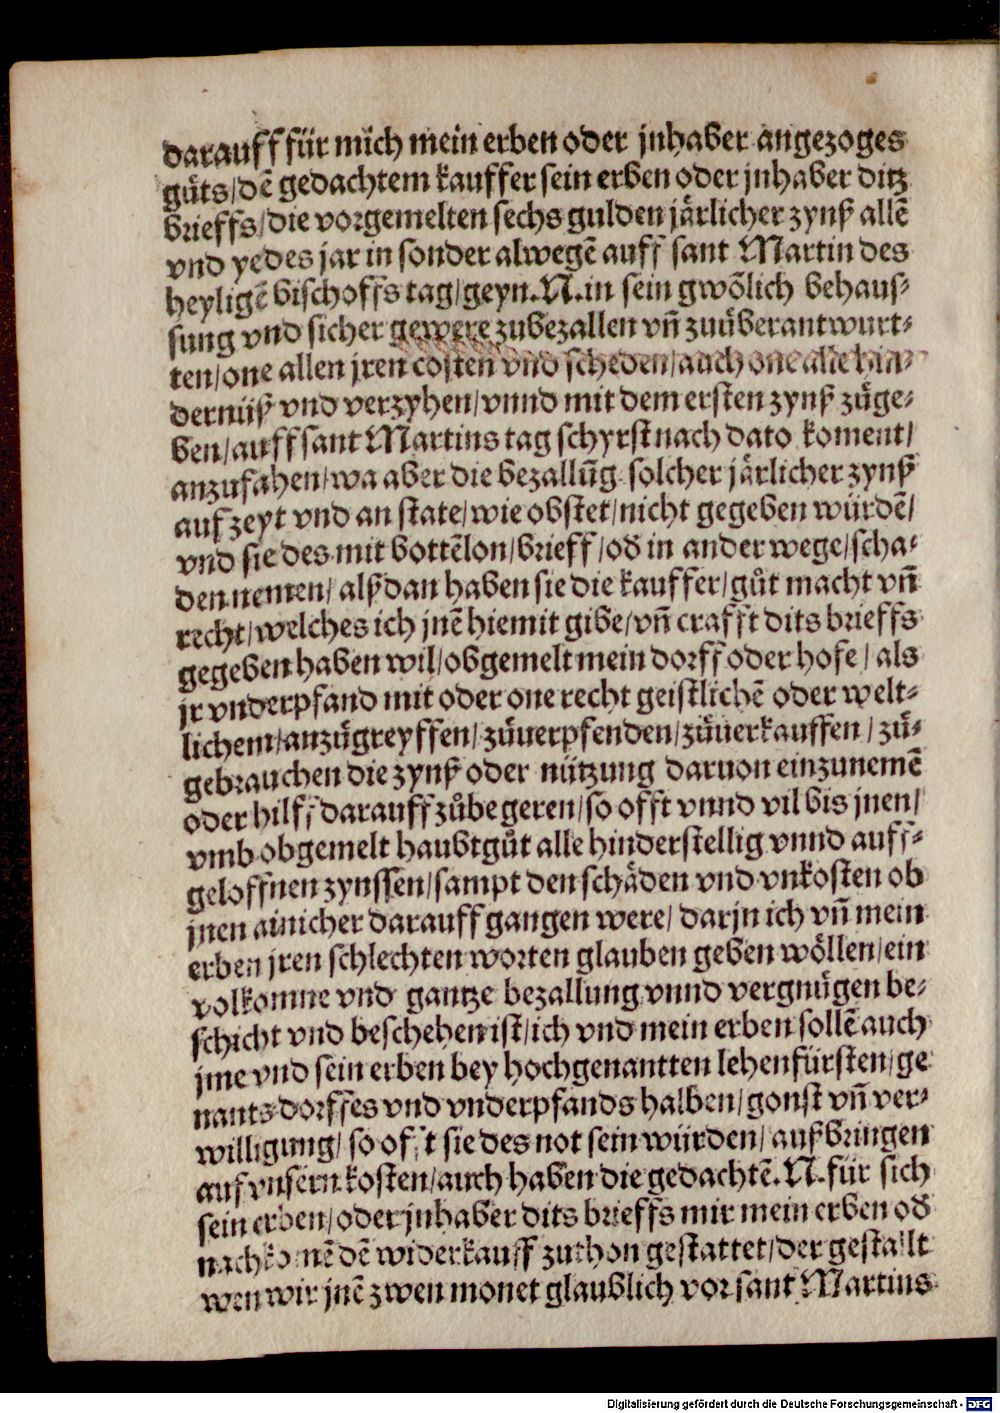 darauff für mich mein erben oder jnhaber angezoges
guͤts/dē gedachtem kauffer sein erben oder jnhaber ditz
brieffs/die vorgemelten sechs gulden jaͤrlicher zynß allē
vnd yedes jar in sonder alwegē auff sant Martin des
heyligē bischoffs tag/geyn.N.in sein gwoͤlich behaus⸗
sung vnd sicher gewere zubezallen vñ zuüberantwurt⸗
ten/one allen jren costen vnd scheden/auch one alle hin⸗
dernüß vnd verzyhen/vnnd mit dem ersten zynß zuͤge⸗
ben/auff sant Martins tag schyrst nach dato koment/
anzufahen/wa aber die bezallūg solcher jaͤrlicher zynß
auf zeyt vnd an state/wie obstet/nicht gegeben würdē/
vnd sie des mit bottēlon/brieff/od in ander wege/scha⸗
den nemen/alßdan haben sie die kauffer/guͤt macht vñ
recht/welches ich jnē hiemit gibe/vñ crafft dits brieffs
gegeben haben wil/obgemelt mein dorff oder hofe/als
jr vnderpfand mit oder one recht geistlichē oder welt⸗
lichem/anzuͤgreyffen/zuͤuerpfenden/zuͤuerkauffen/zuͤ⸗
gebrauchen die zynß oder nützung daruon einzunemē
oder hilff darauff zuͤbegeren/so offt vnnd vil bis jnen/
vmb obgemelt haubtguͤt alle hinderstellig vnnd auff⸗
geloffnen zynssen/sampt den schaͤden vnd vnkosten ob
jnen ainicher darauff gangen were/darjn ich vñ mein
erben jren schlechten worten glauben geben woͤllen/ein
volkomne vnd gantze bezallung vnnd vergnuͤgen be⸗
schicht vnd beschehen ist/ich vnd mein erben sollē auch
jme vnd sein erben bey hochgenantten lehenfürsten/ge
nants dorffes vnd vnderpfands halben/gonst vñ ver⸗
willigung/so offt sie des not sein würden/außbringen
auf vnsern kosten/auch haben die gedachtē.N.für sich
sein erben/oder jnhaber dits brieffs mir mein erben od
nachkomē dē widerkauff zuthon gestattet/der gestallt
wen wir jnē zwen monet glaublich vor sant Martins
Digitalisierung gefördert durch die Deutsche Forschungsgemeinschaft - DFG